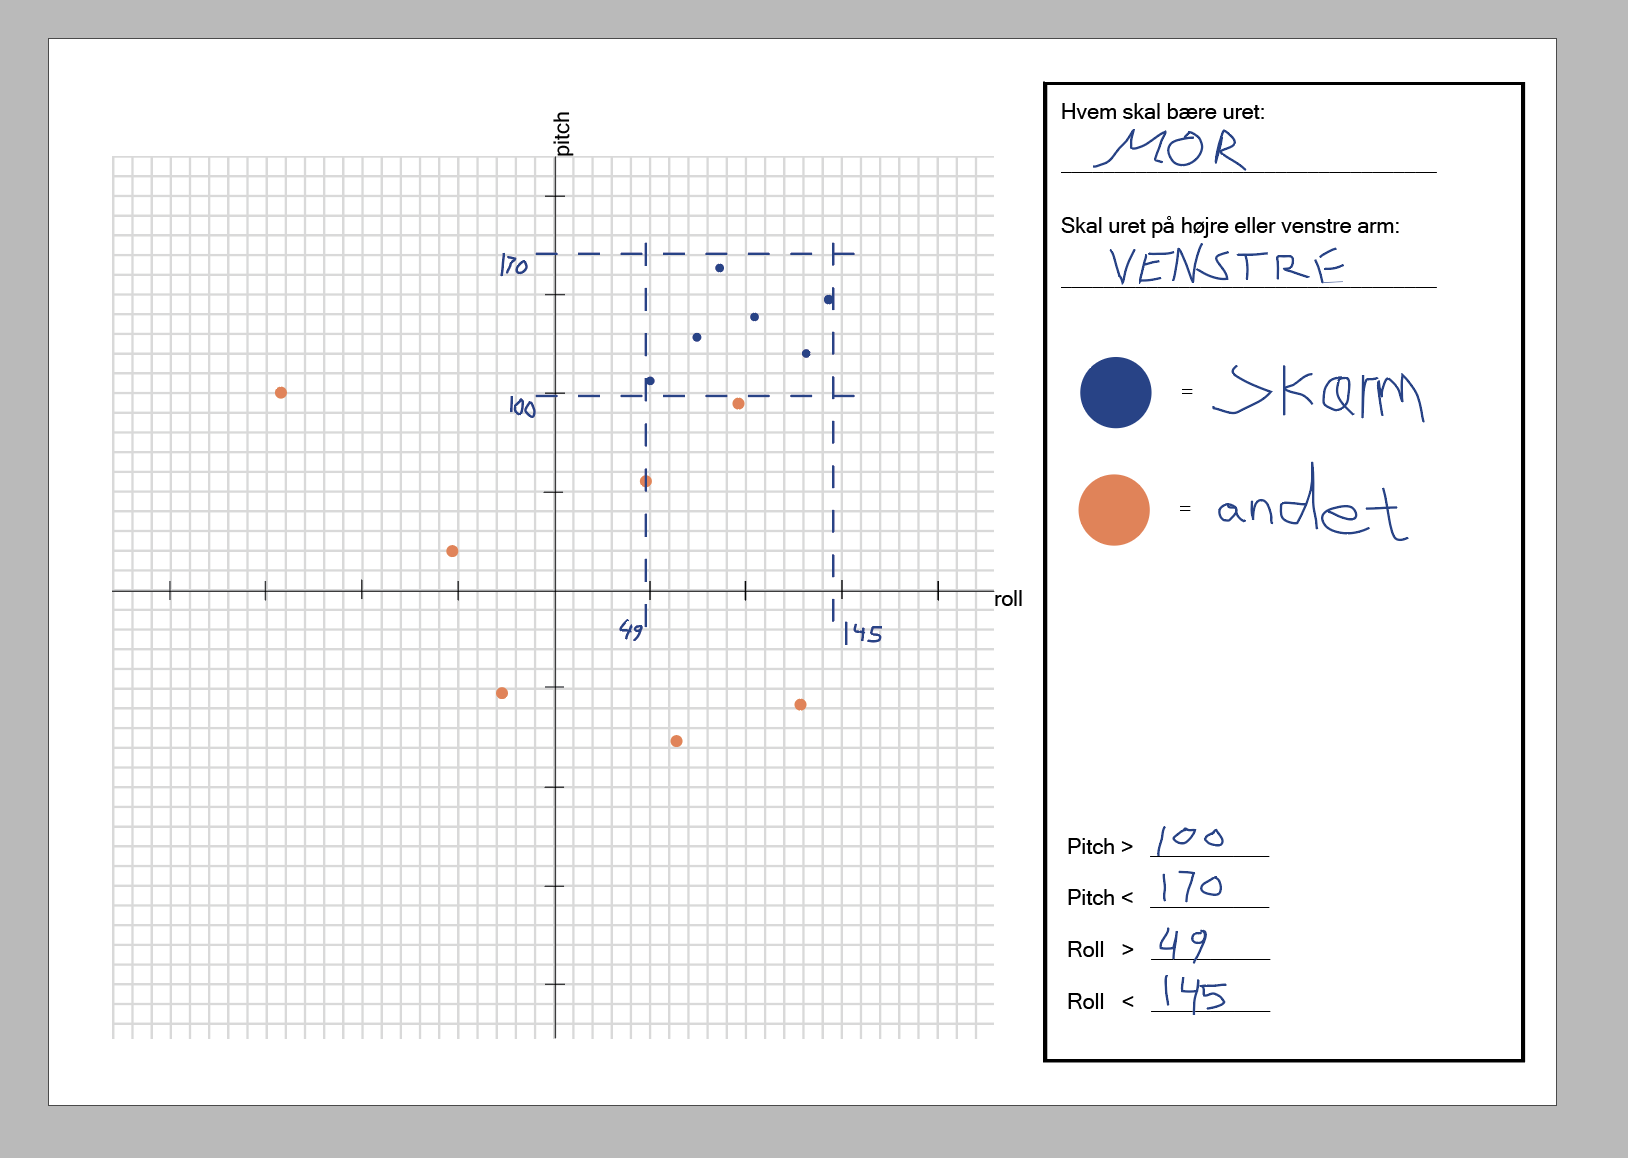 pitch
170
100
roll
49
145
Hvem skal bære uret:
MOR
Skal uret på højre eller venstre arm:
VENSTRE
= Skærm
= andet
Pitch > 100
Pitch < 170
Roll > 49
Roll < 145